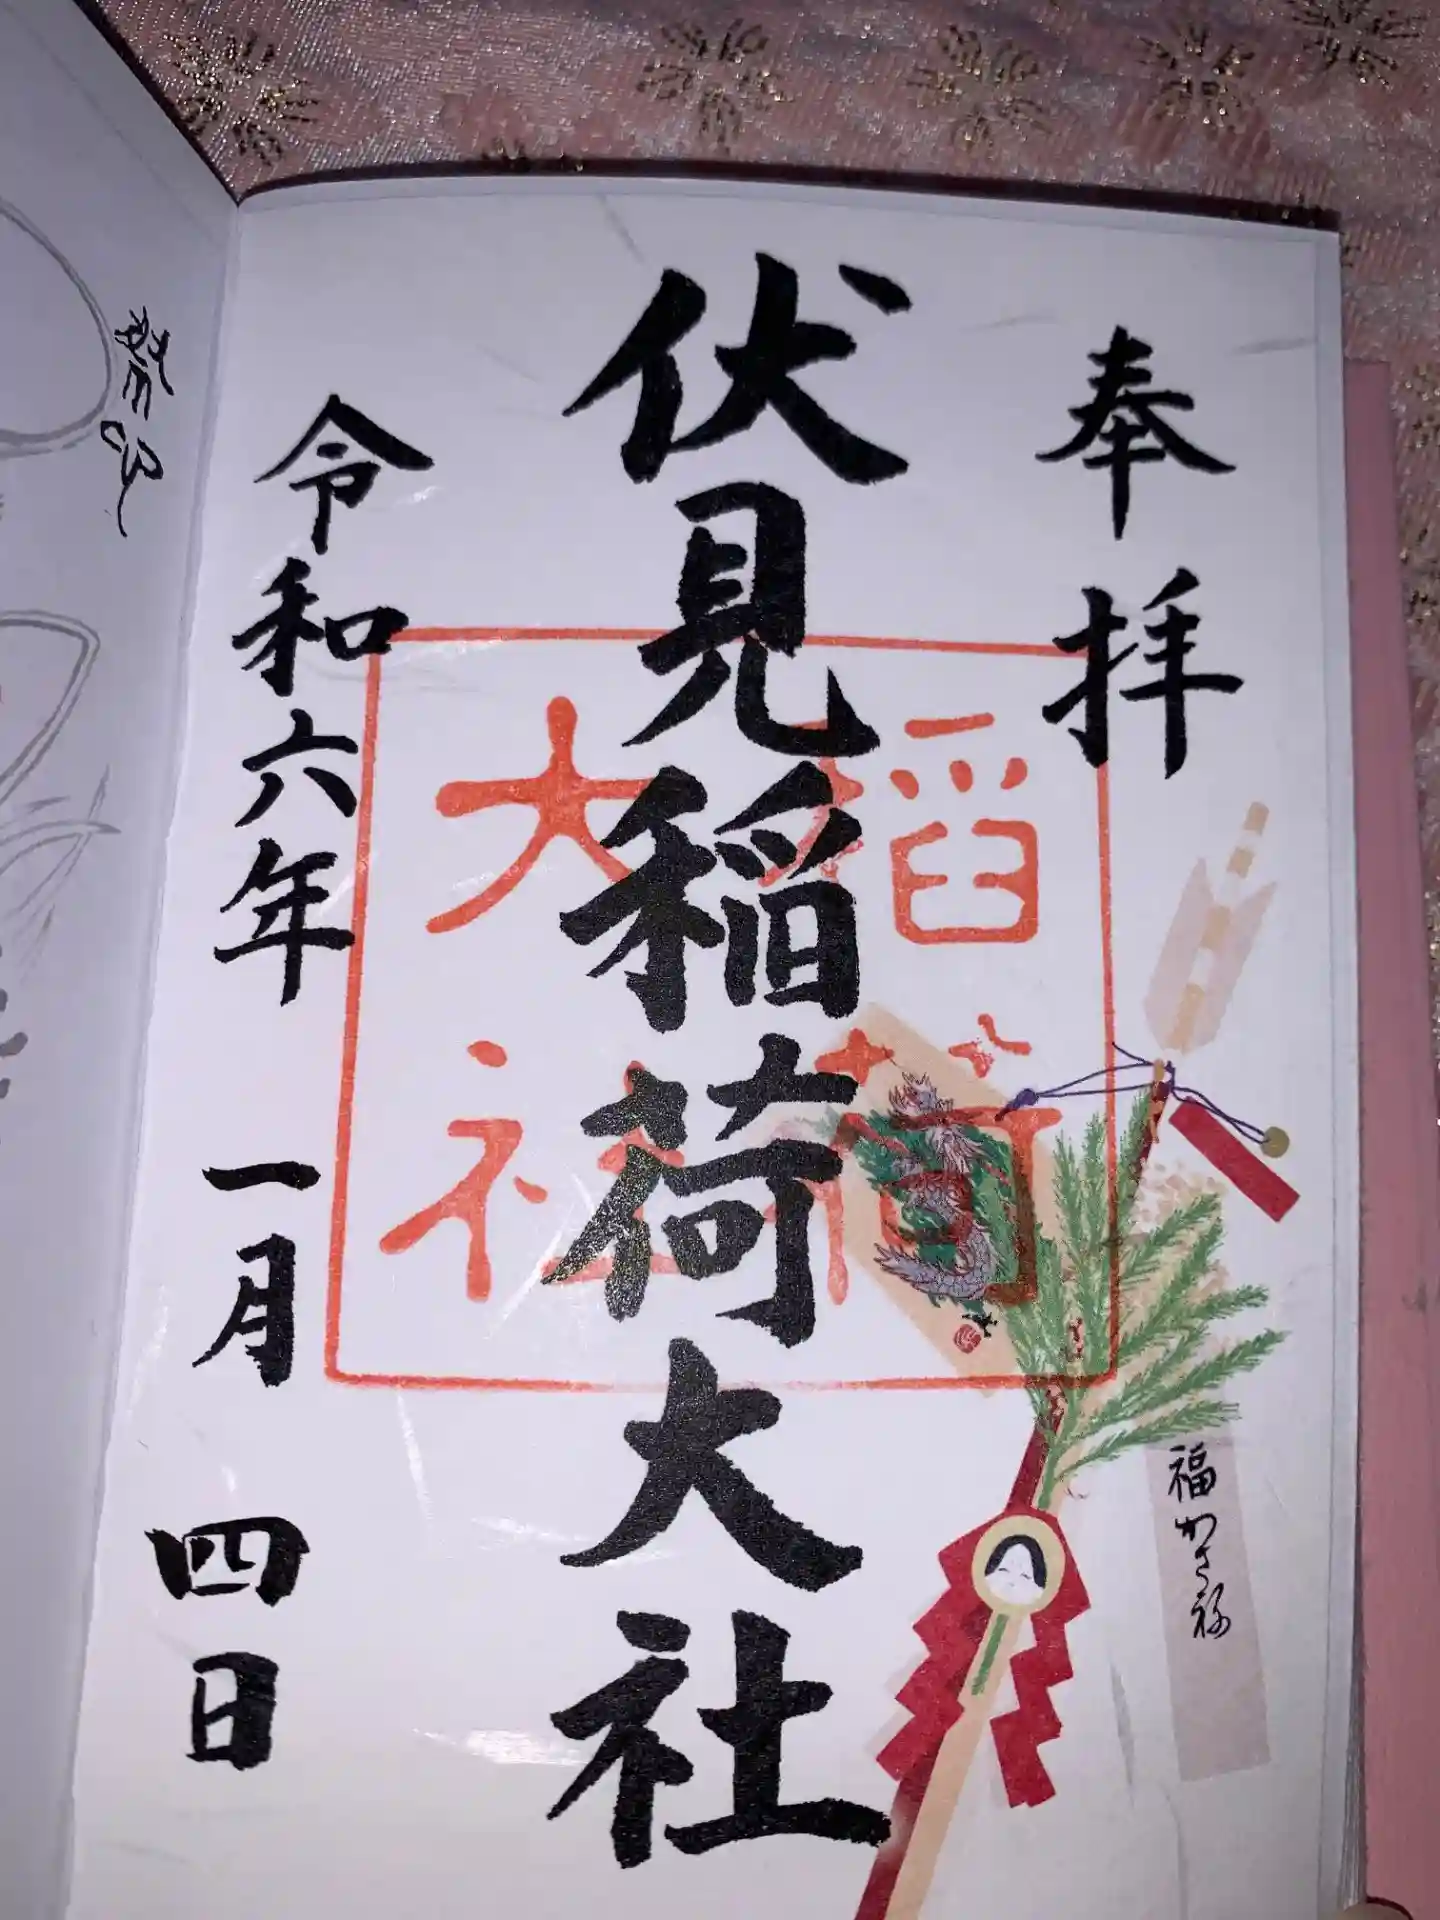 奉拝
伏見稲荷大社
稲荷
大社
令和六年 一月 四日
福かさね